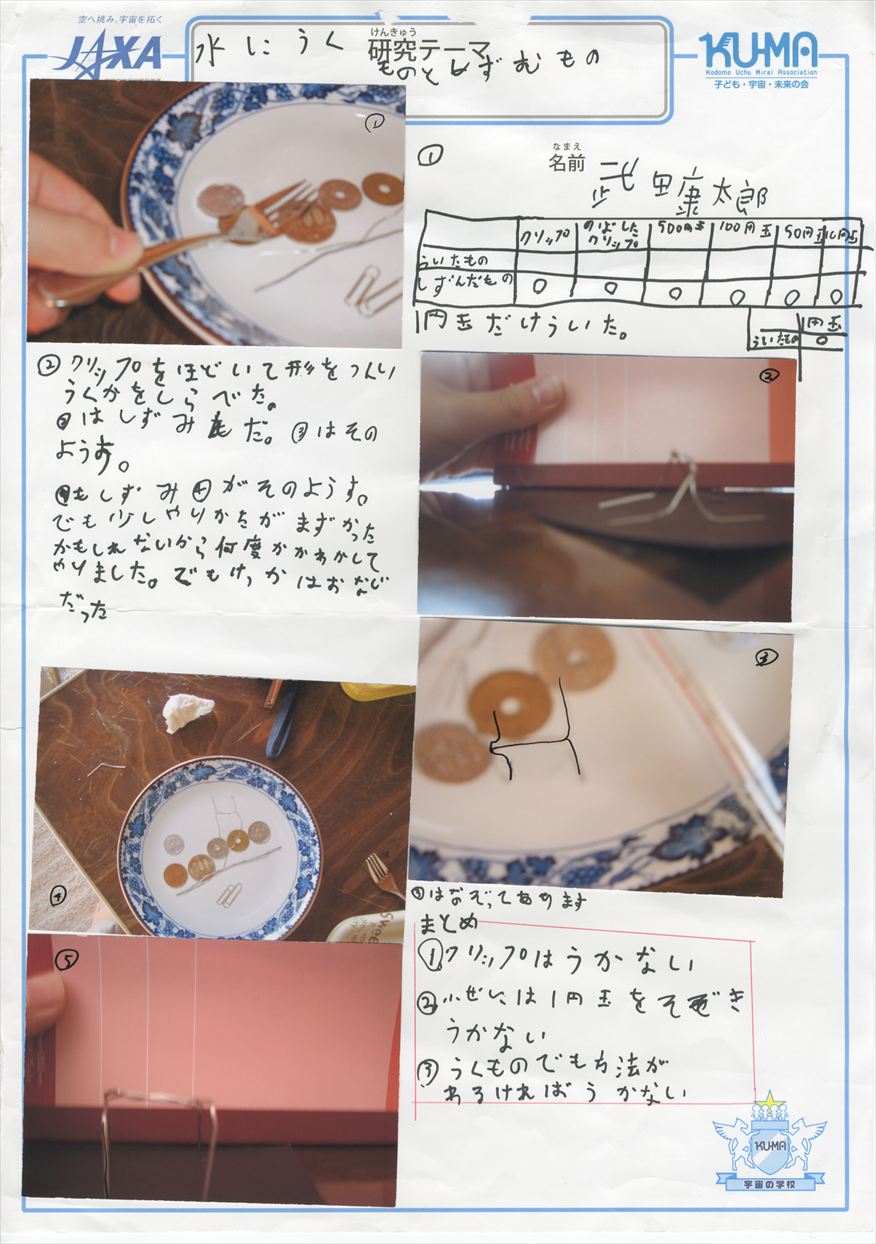 空へ挑み、宇宙を拓く
JAXA
けんきゅう
研究テーマ
水にうく
ものとしずむもの
KU-MA
Kodomo Uchu Mirai Association
子ども・宇宙・未来の会
①
①
なまえ
名前 武田康太郎
クリップ のばしたクリップ 500円玉 100円玉 50円玉
ういたもの
しずんだもの ○ ○ ○ ○ ○ ○
1円玉だけういた。
1円玉
ういたもの ○
② クリップをほどいて形をつくり
うくかをしらべた。
はしずみ だ。③はその
ようす。
もしずみ④がそのようす。
でも少しやりかたがまずかった
かもしれないから何度か かして
やりました。でもけっかはおなじ
だった
②
③
④
③はなぞってあります
まとめ
①クリップはうかない
②小ぜには1円玉をのぞき
うかない
③うくものでも方法が
わるければうかない
⑤
KU-MA
宇宙の学校